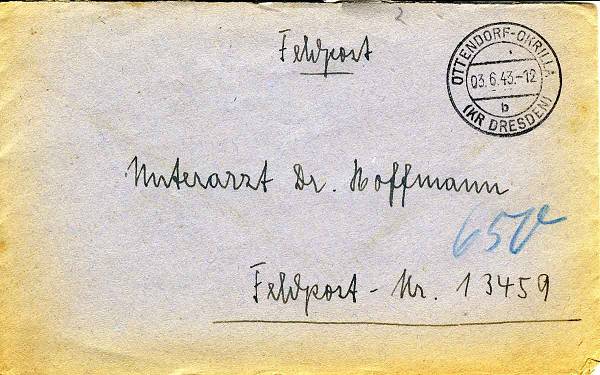 2
Feldpost
OTTENDORF-OKRILLA
03.6.43.-12
b
(KR DRESDEN)
Unterarzt Dr. Hoffmann
Feldpost-Nr. 13459